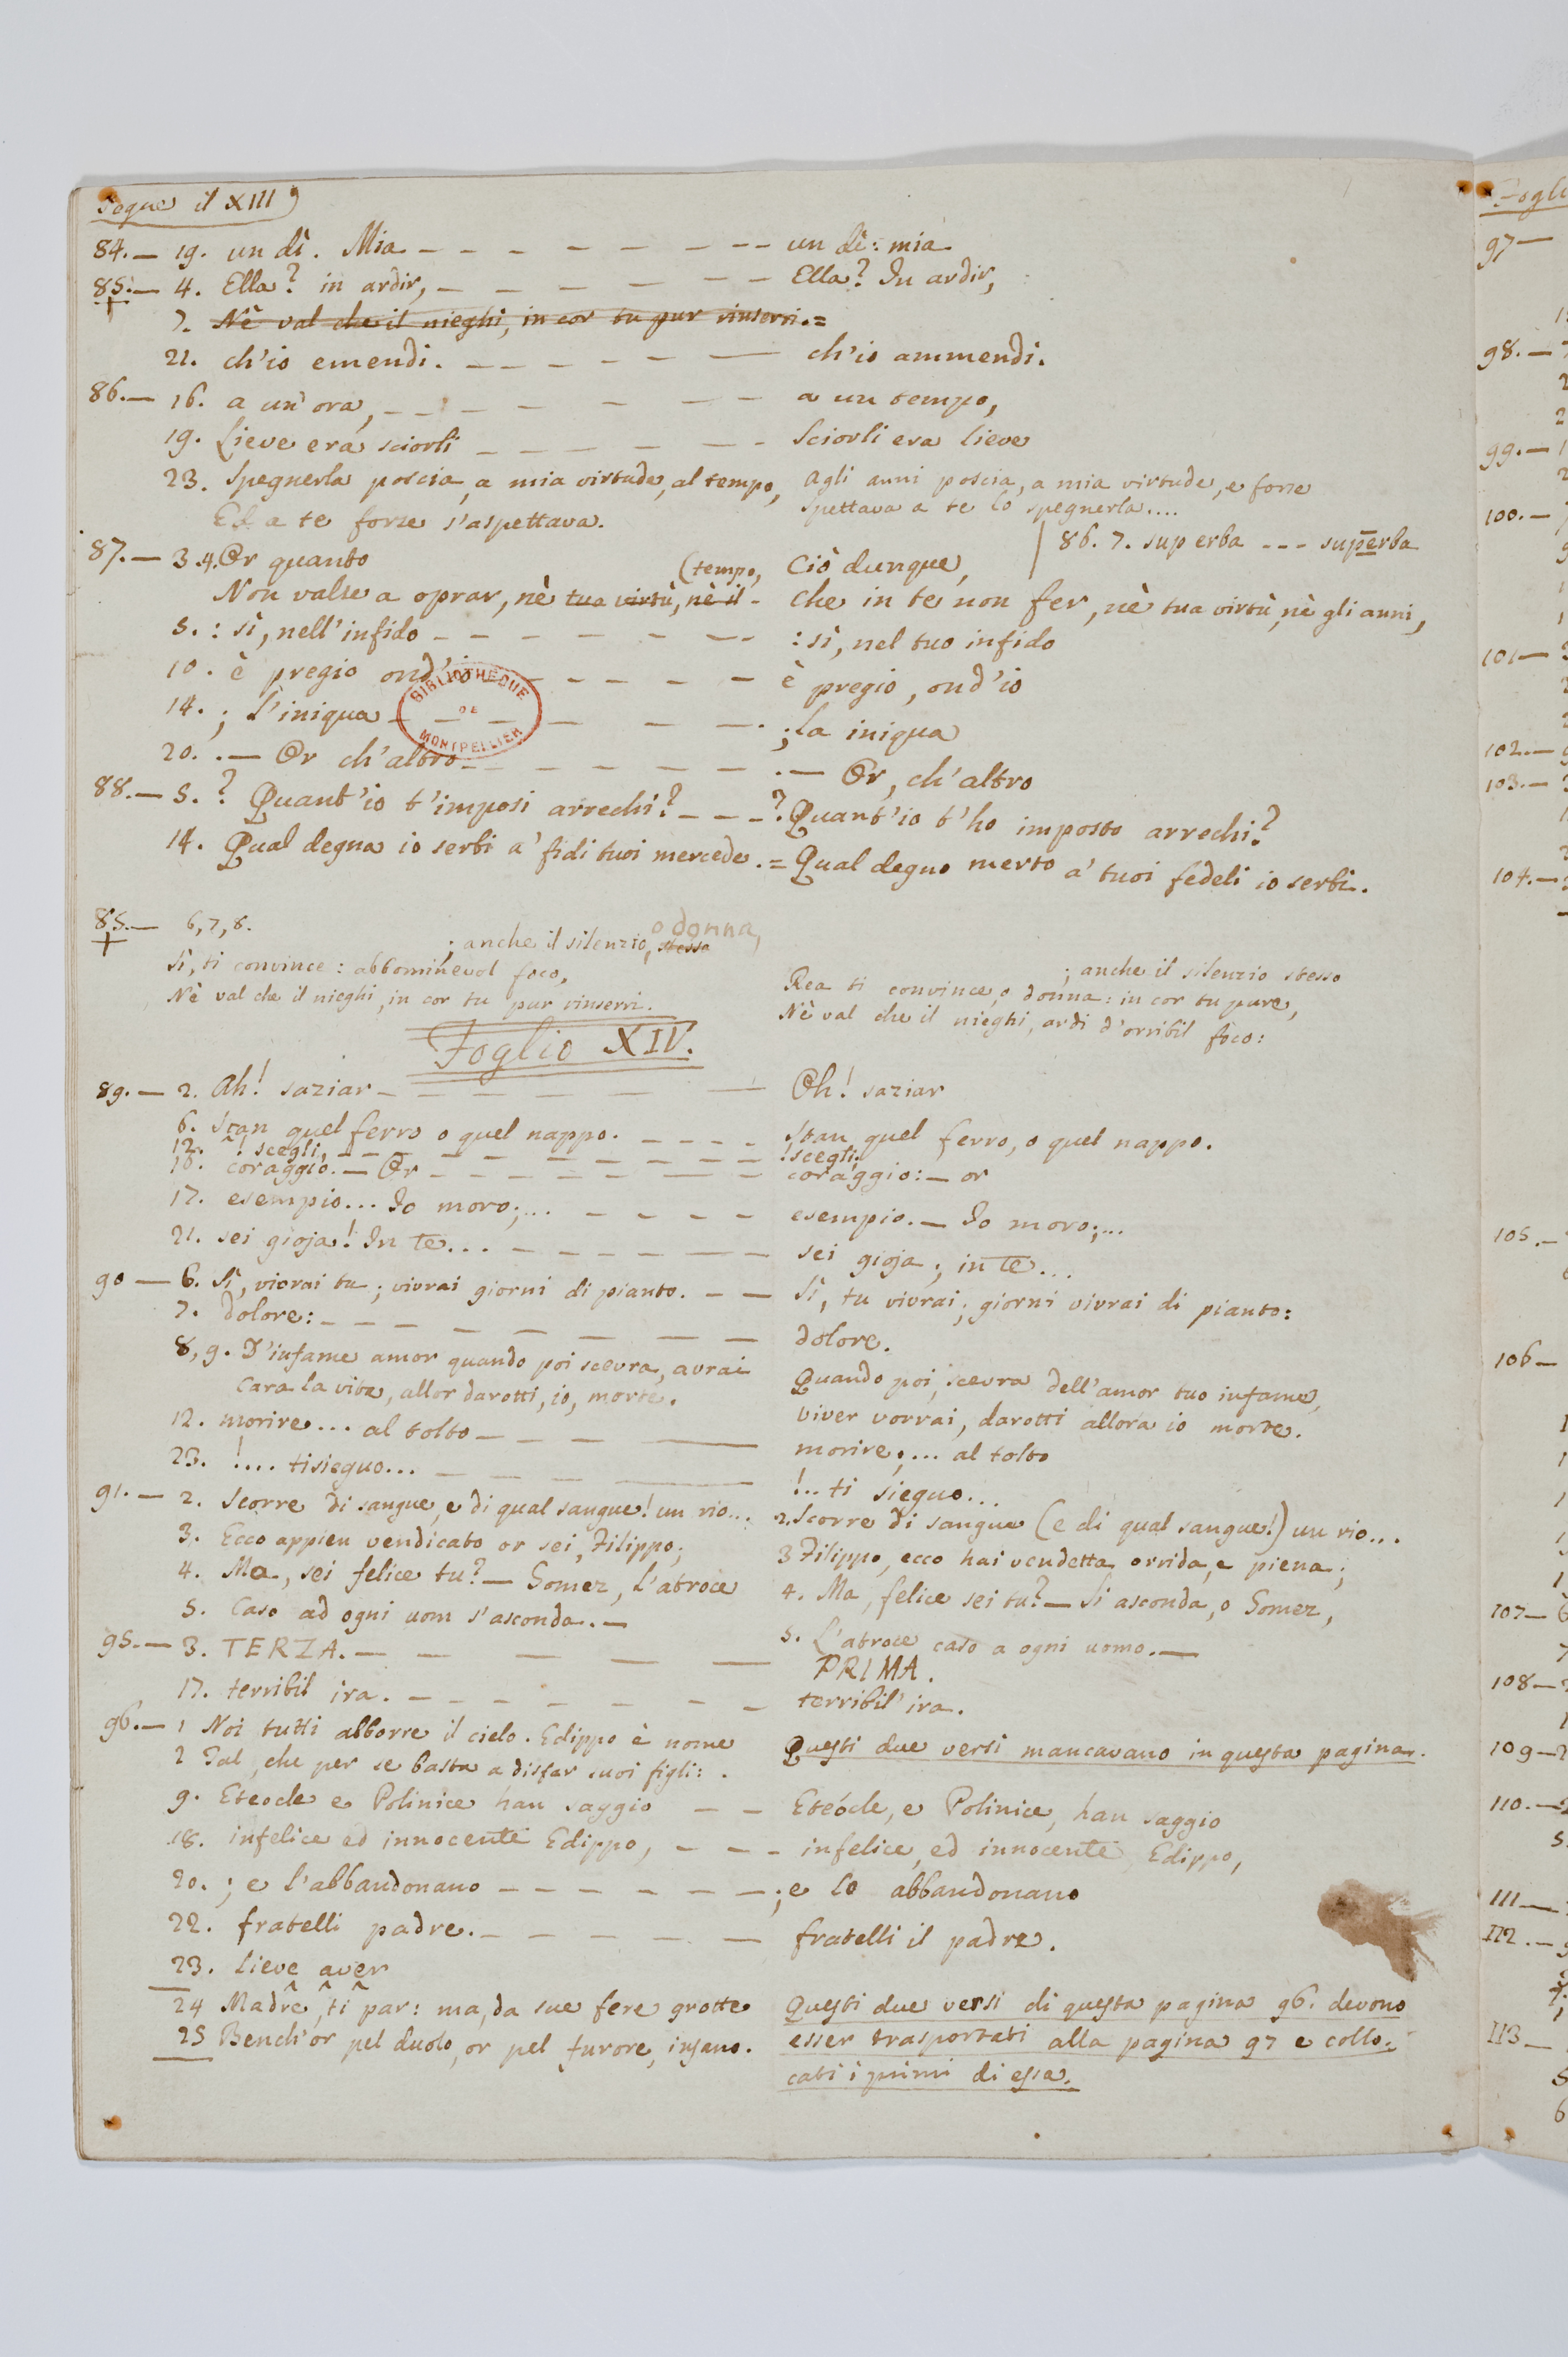 Segue il XIII)
84.— 19. un dì. Mia — — — — — — — — un dì: mia
85.— 4. Ella? in ardir, — — — — — — Ella? In ardir,
+
7. Nè val che il nieghi, in cor tu pur rinserri.=
21. ch'io emendi. — — — — — — ch'io ammendi.
86.— 16. a un'ora, — — — — — — — a un tempo,
19. Lieve era sciorli — — — — — — Sciorli era lieve
23. Spegnerla poscia, a mia virtude, al tempo, agli anni poscia, a mia virtude, e forse
Ed a te forse s'aspettava. spettava a te lo spegnerla....
86. 7. superba --- superba
87.— 3.4. Or quanto (tempo, Ciò dunque,
Non valse a oprar, nè tua virtù, nè il - che in te non fer, nè tua virtù, nè gli anni,
5. : sì, nell'infido — — — — — — — : sì, nel tuo infido
10. è pregio ond'io — — — — — è pregio, ond'io
14. ; l'iniqua — — — — — — ; la iniqua
20. .— Or ch'altro — — — — — — .— Or, ch'altro
88.— 5. ? Quant'io t'imposi arrechi? — — — ? Quant'io t'ho imposto arrechi?
14. Qual degna io serbi a' fidi tuoi mercede. = Qual degno merto a' tuoi fedeli io serbi.
85.— 6, 7, 8.
+
; anche il silenzio, stessa o donna, ; anche il silenzio stesso
Sì, ti convince: abbominevol foco, Rea ti convince, o donna: in cor tu pure,
Nè val che il nieghi, in cor tu pur rinserri. Nè val che il nieghi, ardi d'orribil foco:
Foglio XIV.
89.— 2. Ah! saziar — — — — — — — Oh! saziar
6. Stan quel ferro o quel nappo. — — — — Stan quel ferro, o quel nappo.
12. ! scegli, — — — — — — — — ! scegli.
16. coraggio.— Or — — — — — — — coraggio:— or
17. esempio... Io moro;... — — — — esempio.— Io moro;...
21. sei gioja! In te... — — — — — — sei gioja; in te...
90 — 6. Sì, vivrai tu; vivrai giorni di pianto. — — Sì, tu vivrai; giorni vivrai di pianto:
7. dolore: — — — — — — — — dolore.
8, 9. D'infame amor quando poi scevra, avrai Quando poi, scevra dell'amor tuo infame,
Cara la vita, allor darotti, io, morte. Viver vorrai, darotti allora io morte.
12. morire... al tolto — — — — morire;... al tolto
23. !.... ti sieguo... — — — — !.. ti sieguo...
91.— 2. Scorre di sangue, e di qual sangue! un rio... 2. Scorre di sangue (e di qual sangue!) un rio...
3. Ecco appien vendicato or sei, Filippo; 3 Filippo, ecco hai vendetta orrida, e piena;
4. Ma, sei felice tu? — Gomez, l'atroce 4. Ma, felice sei tu? — Si asconda, o Gomez,
5. Caso ad ogni uom s'asconda.— 5. L'atroce caso a ogni uomo.—
95.— 3. TERZA. — — — — — PRIMA.
17. terribil ira. — — — — — — — terribil' ira.
96.— 1 Noi tutti abborre il cielo. Edippo è nome Questi due versi mancavano in questa pagina.
2 Tal, che per se basta a disfar suoi figli: .
9. Eteocle e Polinice han saggio — — Eteócle, e Polinice, han saggio
18. infelice ed innocente Edippo, — — — infelice, ed innocente Edippo,
20. ; e l'abbandonano — — — — — — ; e lo abbandonano
22. fratelli padre. — — — — — — fratelli il padre.
23. Lieve aver
24 Madre, ti par: ma, da sue fere grotte Questi due versi di questa pagina 96. devono
25 Bench'or pel duolo, or pel furore, insano. esser trasportati alla pagina 97 e collo-
cati i primi di essa.
BIBLIOTHEQUE
DE
MONTPELLIER
Foglio
97—
98.—
99.—
100.—
101—
102.—
103.—
104.—
105.—
106—
107—
108—
109—
110.—
111—
112.—
113—